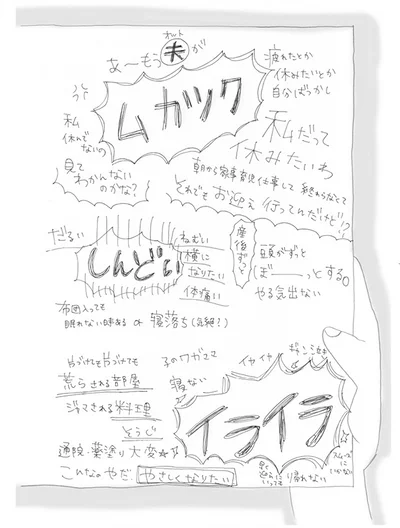 オット
あ〜もう夫が
ムカツク
疲れたとか
休みたいとか
自分ばっかし
私
休んで
ないの
見て
わかんない
のかな?
私だって
休みたいわ
朝から家事育児仕事して終わらなくて
それでもお迎え行ってんだけど!?
だるい
しんどい
ねむい
横に
なりたい
体痛い
産後ずっと
頭がずっと
ぼーーっとする。
やる気出ない
布団入っても
眠れない時ある or 寝落ち(気絶?)
片づけても片づけても
荒らされる部屋
ジャマされる料理
そうじ
通院・薬塗り大変
こんなのやだ。やさしくなりたい
子のワガママ
寝ない
イヤイヤ
ギャン泣き
イライラ
帰れない
スムーズ
に
いかない